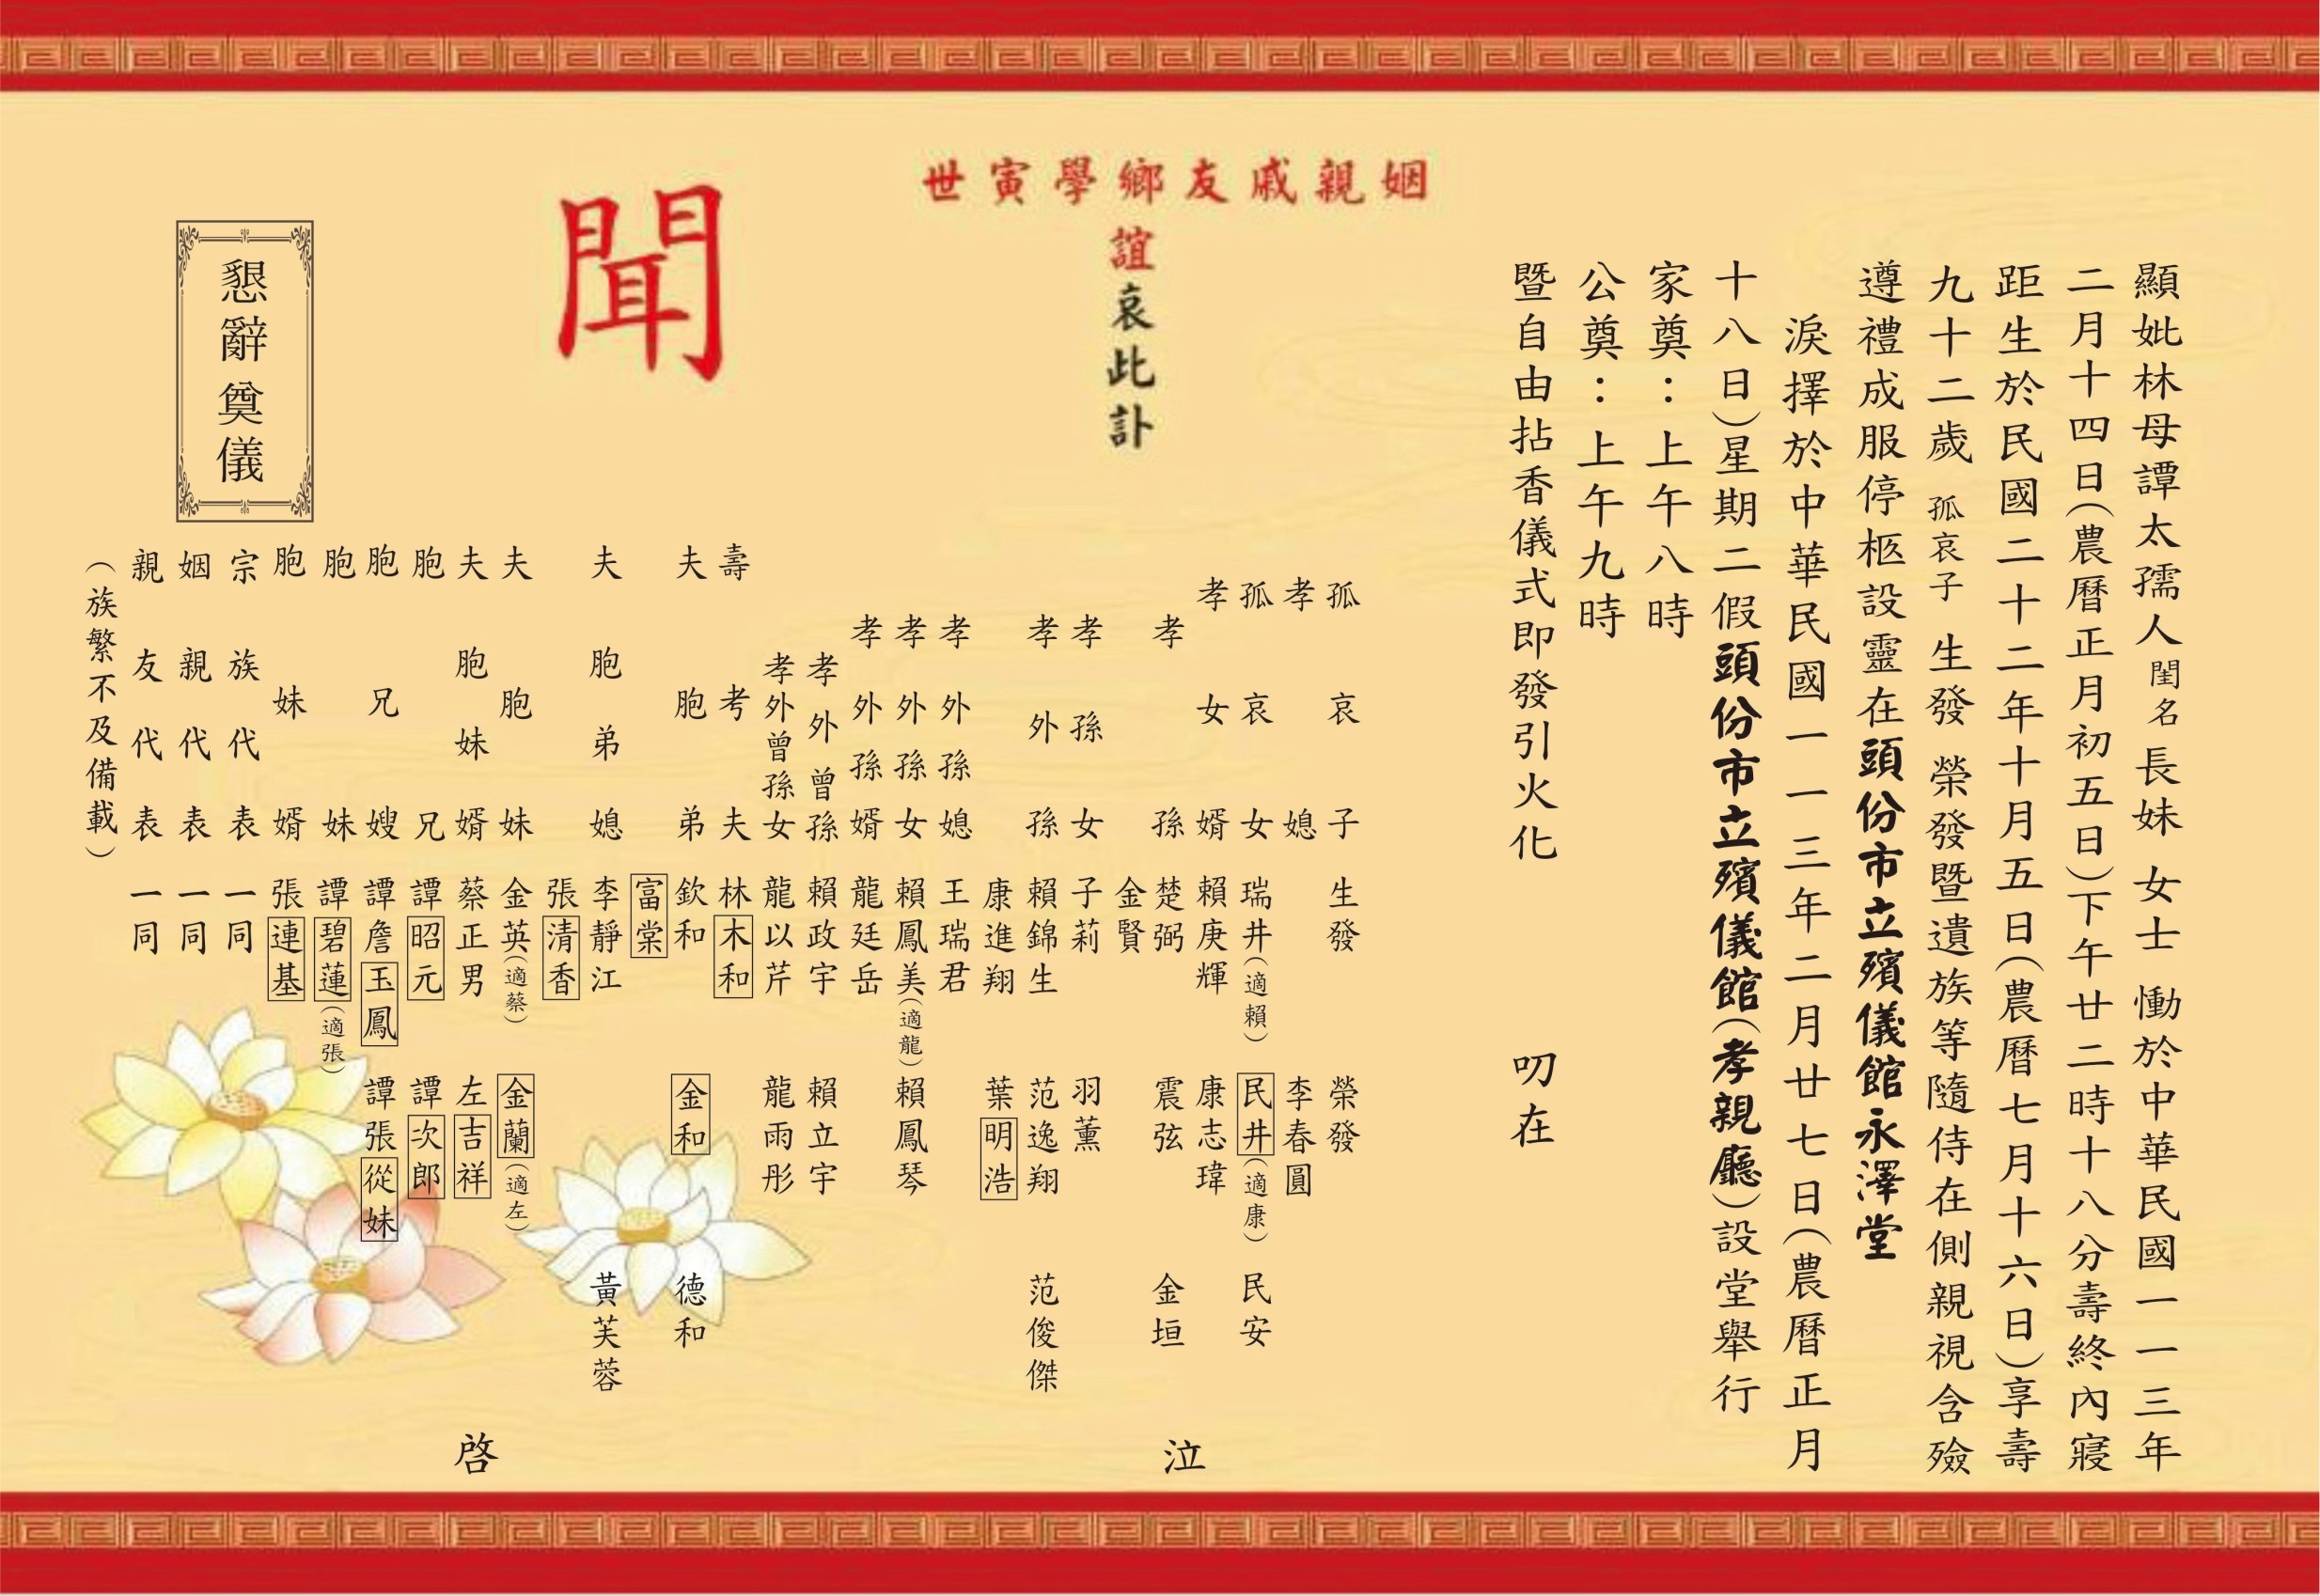 顯妣林母譚太孺人閨名長妹女士慟於中華民國一一三年
二月十四日(農曆正月初五日)下午廿二時十八分壽終內寢
距生於民國二十二年十月五日(農曆七月十六日)享壽
九十二歲 孤哀子 生發 榮發暨遺族等隨侍在側親視含殮
遵禮成服停柩設靈在頭份市立殯儀館永澤堂
淚擇於中華民國一一三年二月廿七日(農曆正月
十八日)星期二假頭份市立殯儀館(孝親廳)設堂舉行
家奠：上午八時
公奠：上午九時
暨自由拈香儀式即發引火化 叨在
姻親戚友鄉學寅世
誼哀此訃
聞
孤哀子 生發 榮發
孝媳 李春圓
孤哀女 瑞井(適賴) 民井(適康) 民安
孝女婿 賴庚輝 康志瑋
孝孫 楚弼 震弦 金垣
金賢
孝孫女 子莉 羽薰
孝外孫 賴錦生 范逸翔 范俊傑
康進翔 葉明浩
孝外孫媳 王瑞君
孝外孫女 賴鳳美(適龍) 賴鳳琴
孝外孫婿 龍廷岳
孝外曾孫 賴政宇 賴立宇
孝外曾孫女 龍以芹 龍雨彤
泣
壽考夫 林木和
夫胞弟 欽和 金和 德和
富棠
夫胞弟媳 李靜江 黃芙蓉
張清香
夫胞妹 金英(適蔡) 金蘭(適左)
夫胞妹婿 蔡正男 左吉祥
胞兄 譚昭元 譚次郎
胞兄嫂 譚詹玉鳳 譚張從妹
胞妹 譚碧蓮(適張)
胞妹婿 張連基
宗族代表 一同
姻親代表 一同
親友代表 一同
(族繁不及備載)
啓
懇辭奠儀